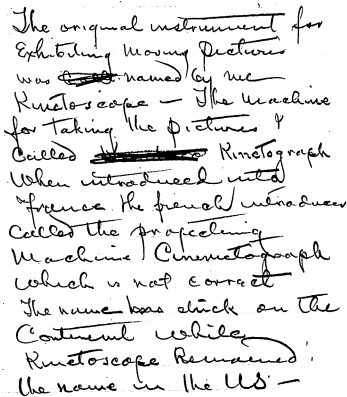 The original instrument for
Exhibiting moving pictures
was named by me
Kinetoscope — The machine
for taking the pictures I
Called Kinetograph
When introduced into
France the french introducer
Called the projecting
Machine Cinematograph
which is not correct
The name has stuck on the
Continent while
Kinetoscope Remained
the name in the US —